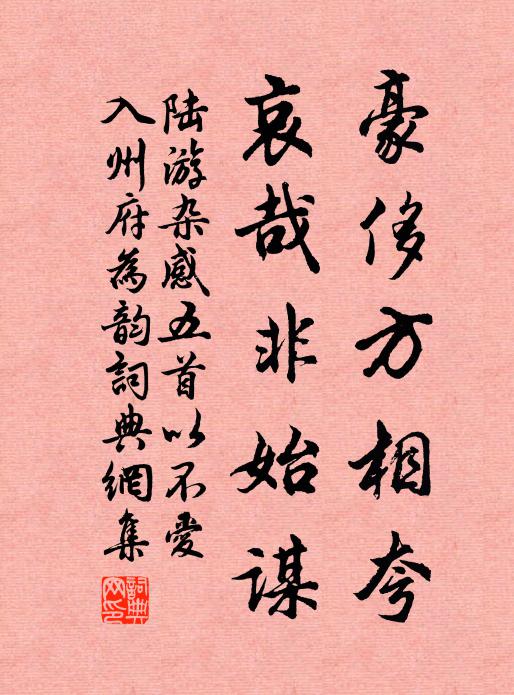 豪侈方相夸
哀哉非始谋
陆游杂感五首以不爱
入州府為韵詞典網集
詞典网印